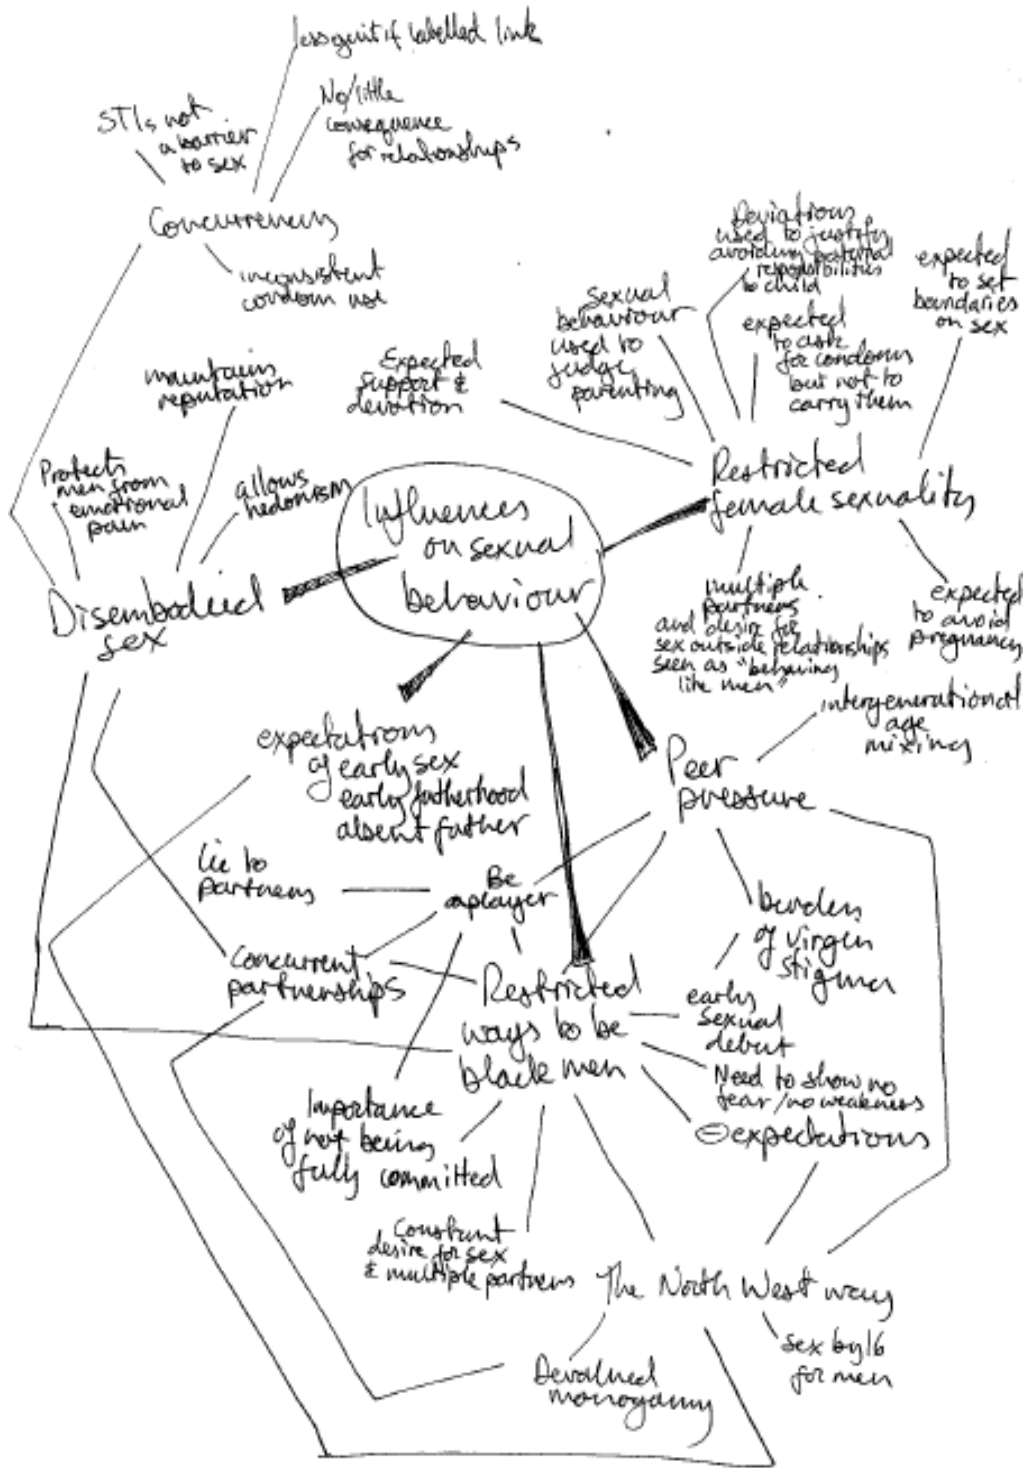 less guilt if labelled link
No/little
consequence
for relationships
STIs not
a barrier
to sex
Concurrency
inconsistent
condom use
maintains
reputation
Protects
men from
emotional
pain
allows
hedonism
Disembodied
sex
Expected
support &
devotion
sexual
behaviour
used to
judge
parenting
Deviations
used to justify
avoiding paternal
responsibilities
to child
expected
to ask
for condoms
but not to
carry them
expected
to set
boundaries
on sex
Restricted
female sexuality
Influences
on sexual
behaviour
multiple
partners
and desire for
sex outside relationships
seen as "behaving
like men"
expected
to avoid
pregnancy
intergenerational
age
mixing
Peer
pressure
expectations
of early sex
early fatherhood
absent father
lie to
partners
Be
a player
burden
of virgin
stigma
Concurrent
partnerships
Restricted
ways to be
black men
early
sexual
debut
Need to show no
fear/no weakness
⊖ expectations
Importance
of not being
fully committed
Constant
desire for sex
& multiple partners
The North West way
sex by 16
for men
Devalued
monogamy